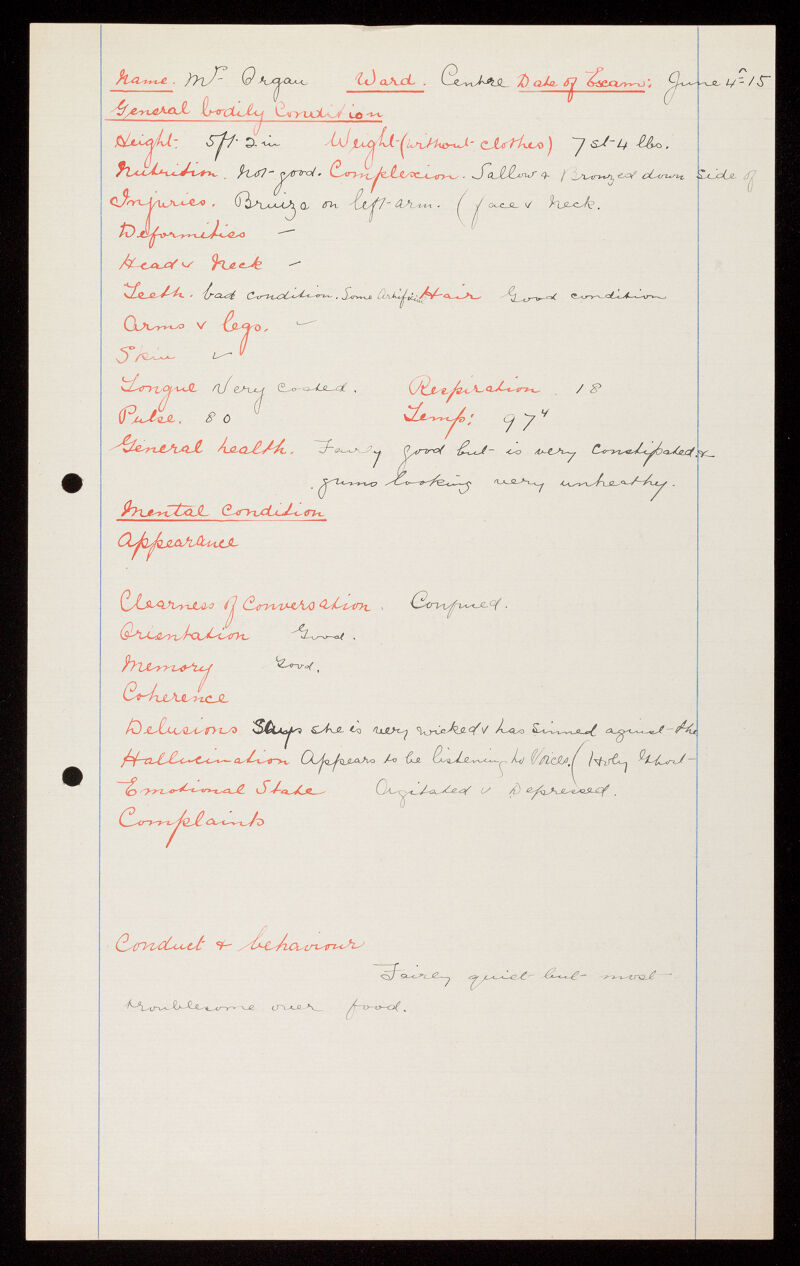 Name. Mrs Organ Ward. Centre Date of Exam: June 4th 15
General bodily Condition
Height. 5ft. 2 in Weight (without clothes) 7 st-4 lbs.
Nutrition. Not good. Complexion. Sallow & Bronzed down side of
Injuries. Bruize on left-arm. ( face & neck.
Deformities –
Head & Neck –
Teeth. bad condition. Some Artificial Hair Good condition
Arms & legs. –
Skin
Tongue Very Coated. Respiration. 18
Pulse. 80 Temp: 97 4
General health. Fairly good but is very constipated &
gums looking very unhealthy.
Mental Condition
Appearance
Clearness of Conversation. Confused.
Orientation Good.
Memory Good.
Coherence
Delusions Says she is very wicked & has sinned against the
Hallucination Appears to be listening to Voices. ( Holy Ghost
Emotional State Agitated & Depressed.
Complaints
Conduct & behaviour
Fairly quiet but most
troublesome over food.